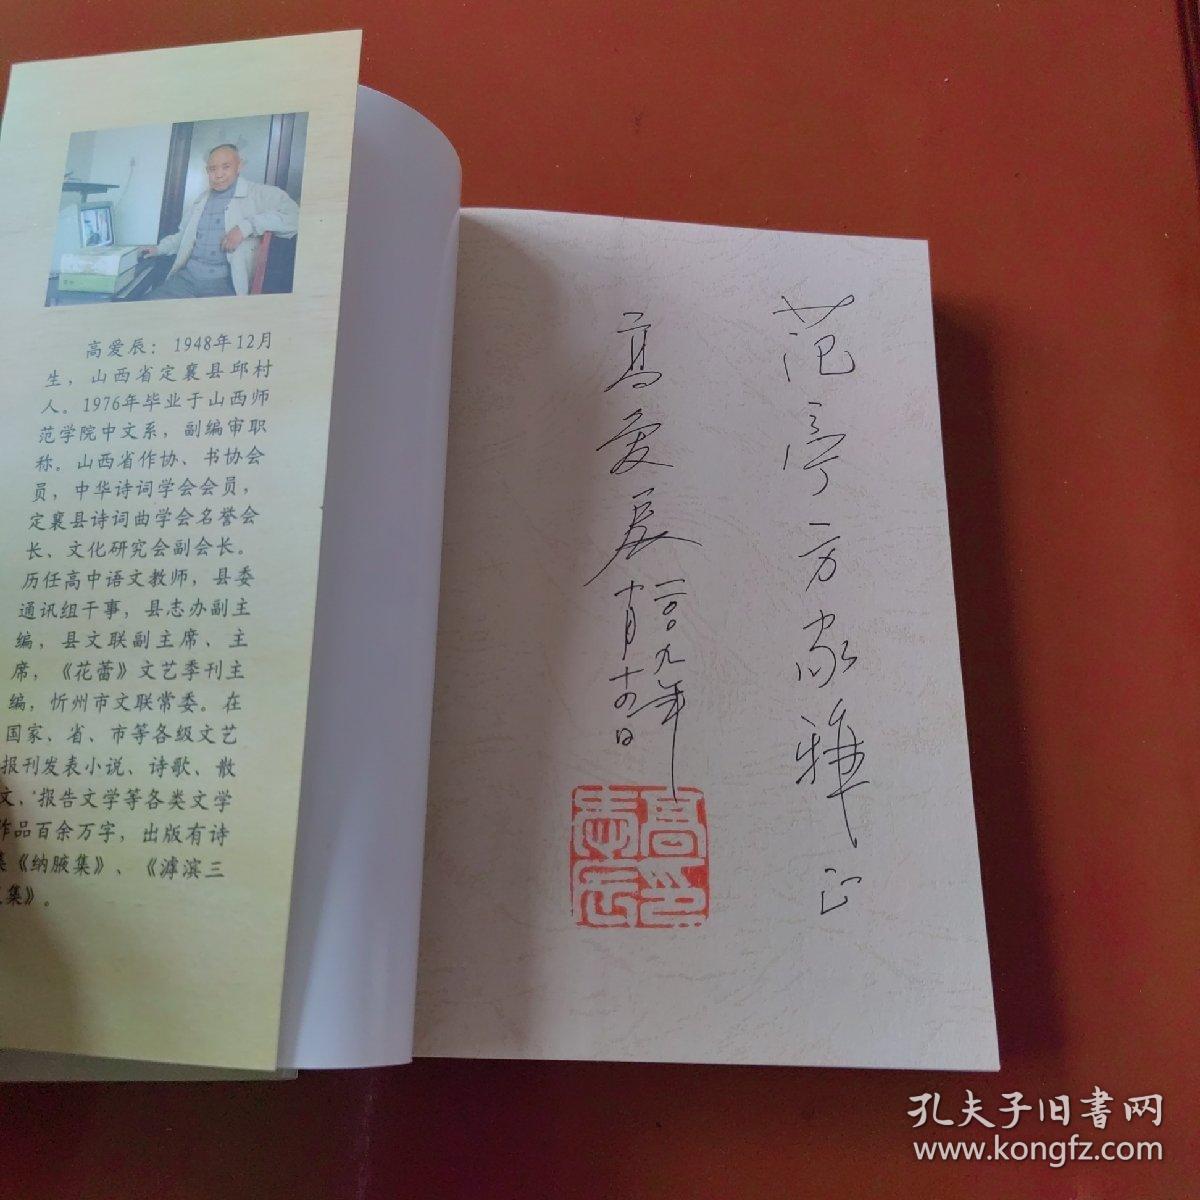 高爱辰：1948年12月
生，山西省定襄县邱村
人。1976年毕业于山西师
范学院中文系，副编审职
称。山西省作协、书协会
员，中华诗词学会会员，
定襄县诗词曲学会名誉会
长、文化研究会副会长。
历任高中语文教师，县委
通讯组干事，县志办副主
编，县文联副主席、主
席，《花蕾》文艺季刊主
编，忻州市文联常委。在
国家、省、市等各级文艺
报刊发表小说、诗歌、散
文，报告文学等各类文学
作品百余万字，出版有诗
集《纳腋集》、《滹滨三
集》。
范亭方家雅正
高爱辰
二〇〇九年
十月十四日
高爱辰印
孔夫子旧書网
www.kongfz.com